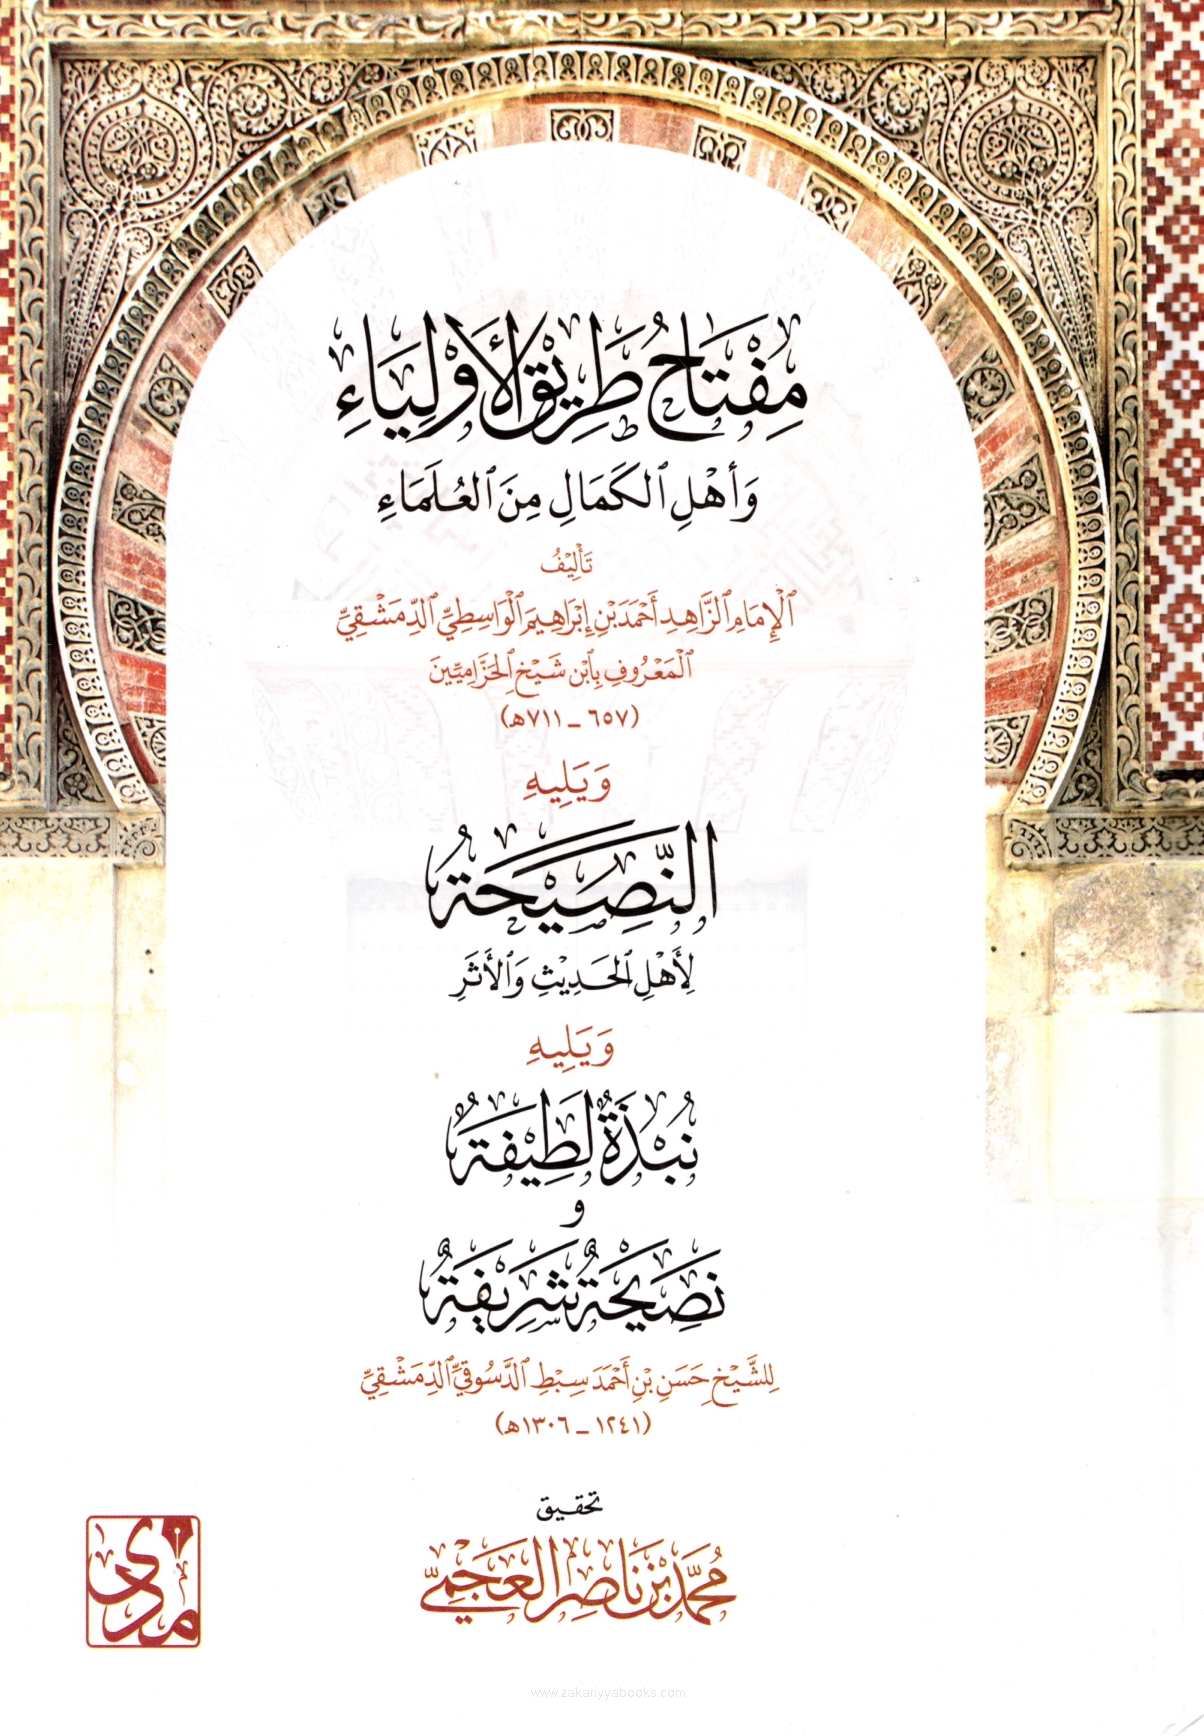 مِفْتَاحُ طَرِيقِ الأَوْلِيَاءِ
وَأَهْلِ الكَمَالِ مِنَ العُلَمَاءِ
تَأْلِيْفُ
الْإِمَامِ الزَّاهِدِ أَحْمَدَ بْنِ إِبْرَاهِيمَ الْوَاسِطِيِّ الدِّمَشْقِيِّ
الْمَعْرُوفِ بِابْنِ شَيْخِ الحَزَّامِيِّينَ
(٦٥٧ ــ ٧١١هـ)
وَيَلِيهِ
النَّصِيْحَةُ
لِأَهْلِ الحَدِيْثِ وَالأَثَرِ
وَيَلِيهِ
نُبْذَةٌ لَطِيْفَةٌ
و
نَصِيْحَةٌ شَرِيْفَةٌ
لِلشَّيْخِ حَسَنِ بْنِ أَحْمَدَ سِبْطِ الدَّسُوقِيِّ الدِّمَشْقِيِّ
(١٢٤١ ــ ١٣٠٦هـ)
تحقيق
مُحَمَّد بْن نَاصِر العَجْمِيّ
مدى
www.zakariyyabooks.com